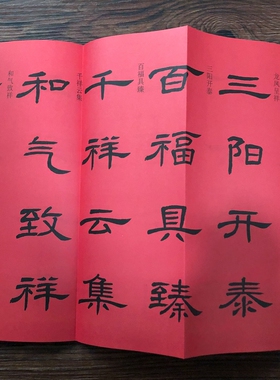 三阳开泰
三阳开泰
百福具臻
百福具臻
千祥云集
千祥云集
和气致祥
和气致祥